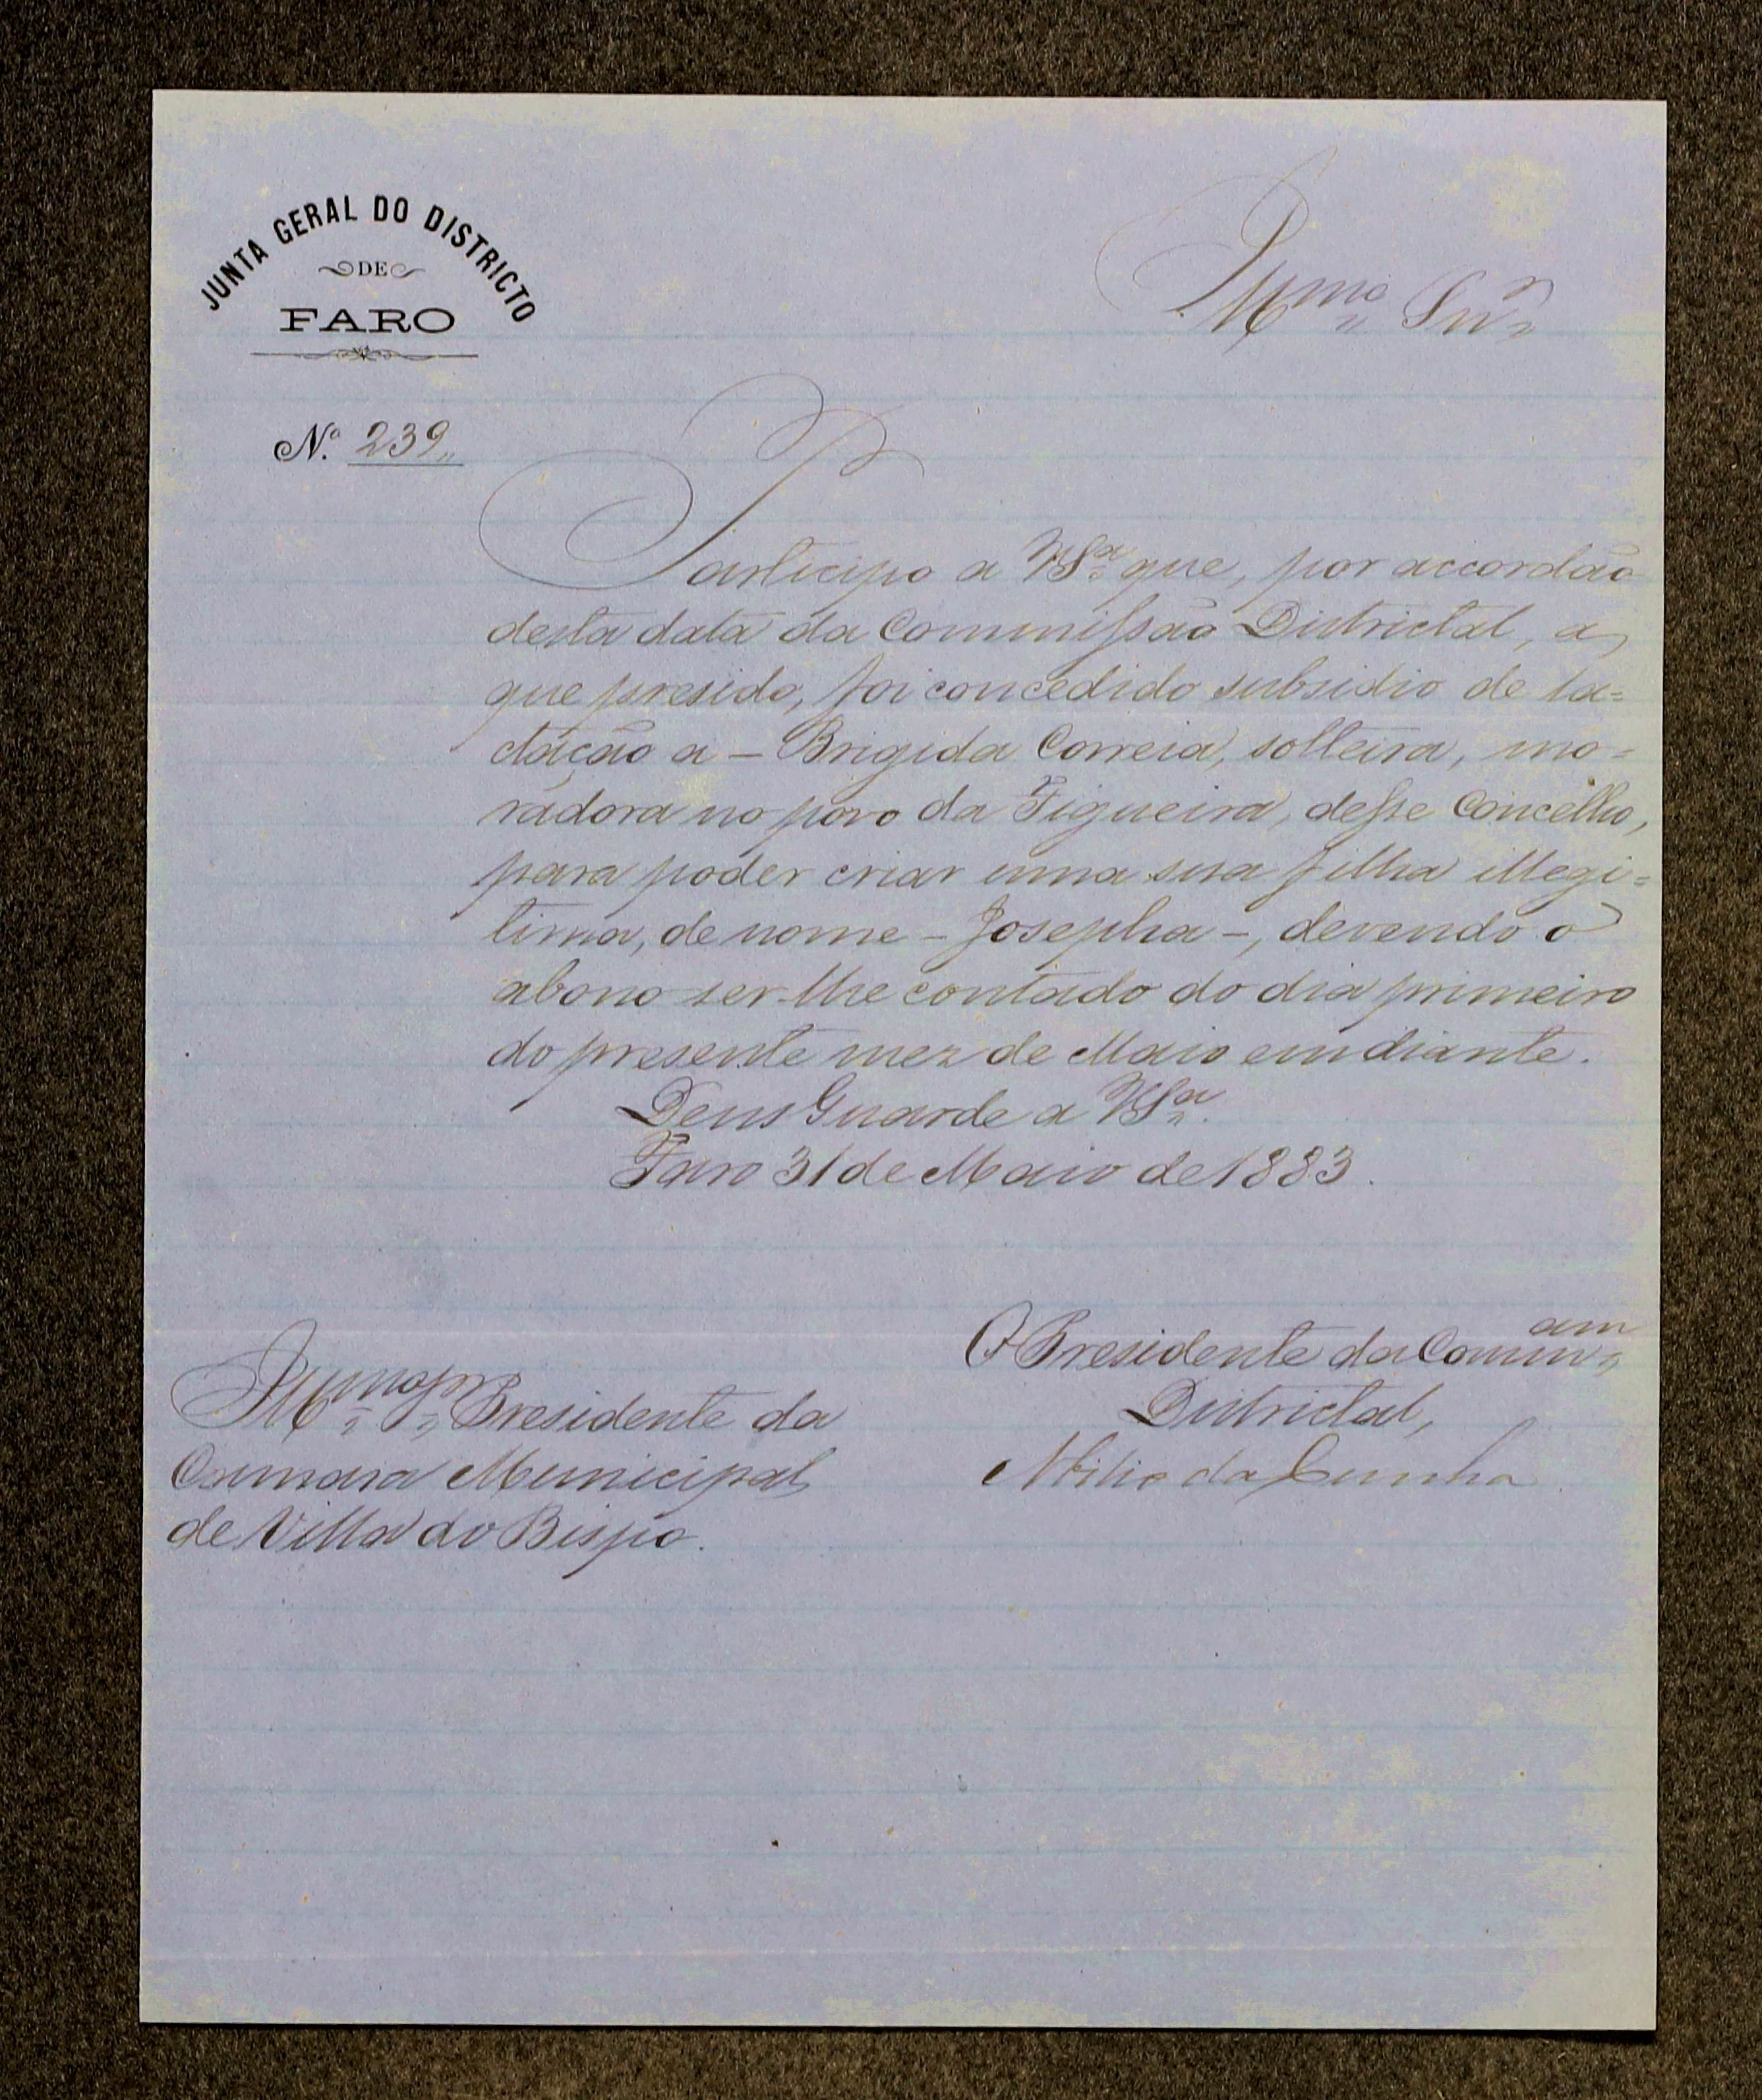 JUNTA GERAL DO DISTRICTO
DE
FARO
Illmo Snr
N.º 239
Participo a V Sª que, por accordão
desta data da Commissão Districtal, a
que presido, foi concedido subsidio de la=
ctação a – Brigida Correia, solteira, mo=
radora no povo da Figueira, desse Concelho,
para poder criar uma sua filha illegi=
tima, de nome – Josepha –, devendo o
abono ser-lhe contado do dia primeiro
do presente mez de Maio em diante.
Deus Guarde a V Sª.
Faro 31 de Maio de 1883.
O Presidente da Commam
Districtal,
da Cunha
Illmo Sr Presidente da
Camara Municipal
de Villa do Bispo.